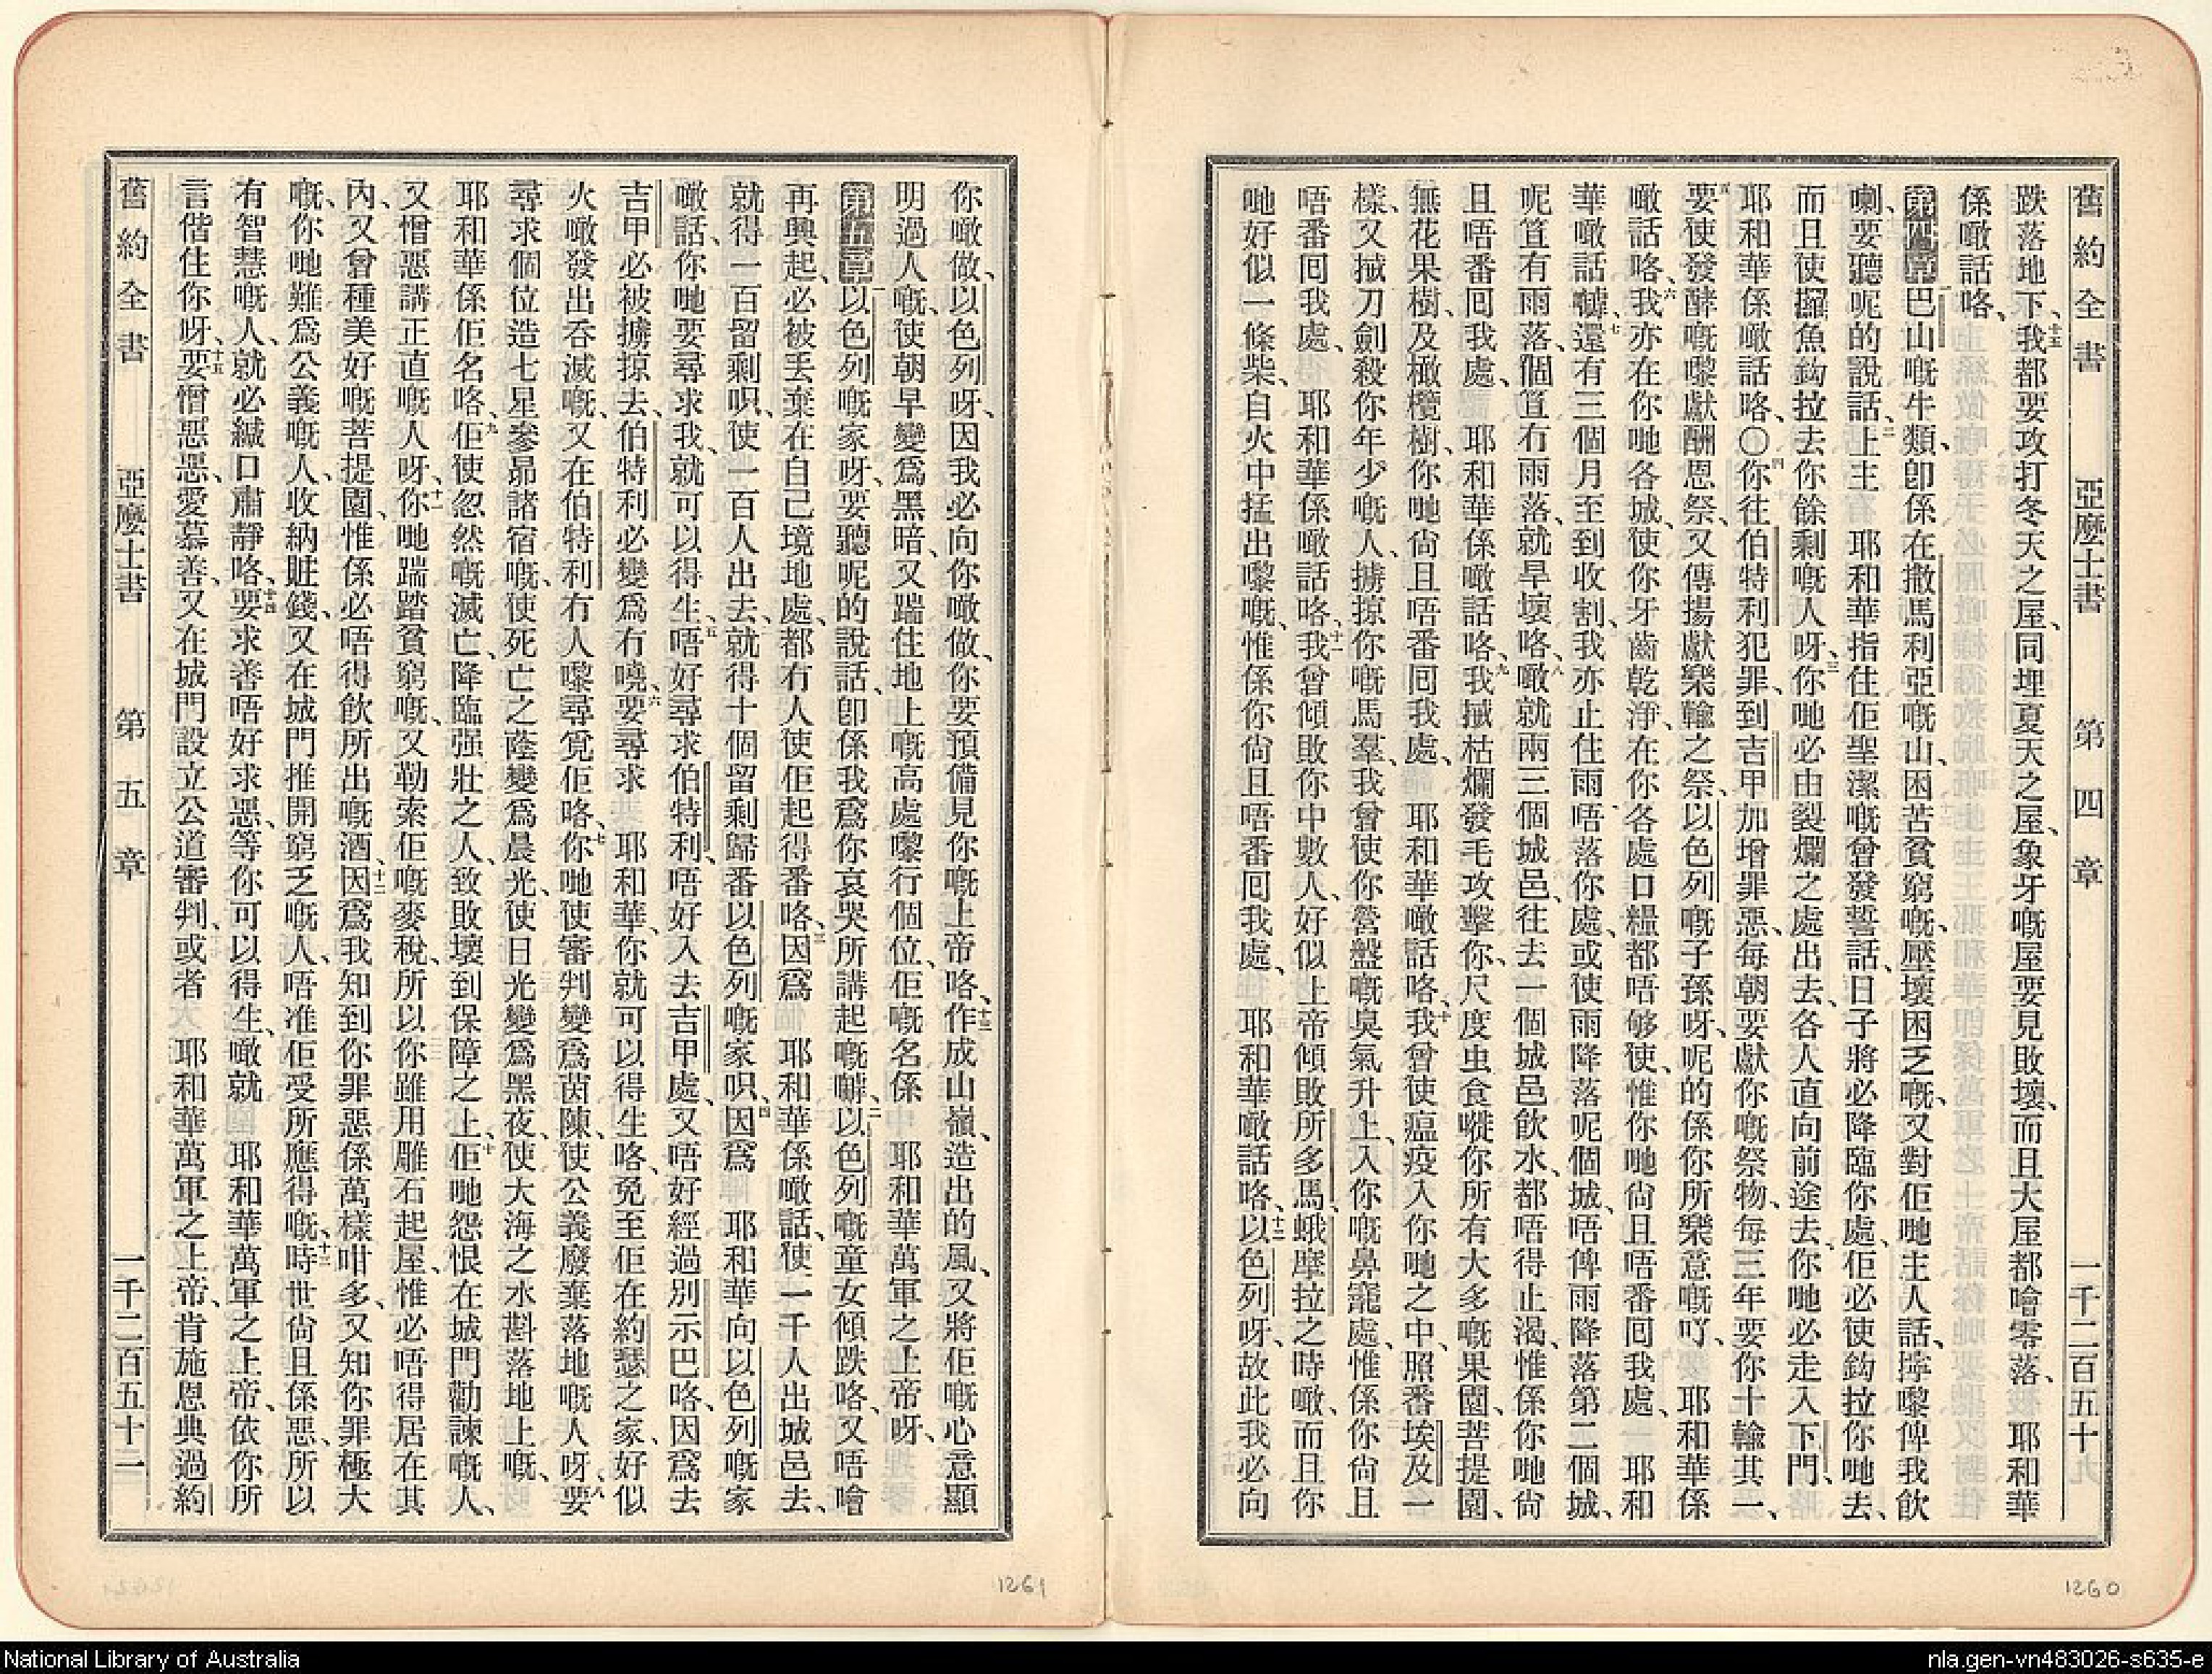 舊約全書 亞麼士書 第四章 一千二百五十九
跌落地下、十五我都要攻打冬天之屋、同埋夏天之屋、象牙嘅屋要見敗壞、而且大屋都噲零落、耶和華
係噉話咯、
第四章 一巴山嘅牛類、卽係在撒馬利亞嘅山、困苦貧窮嘅、壓壞困乏嘅、又對佢哋主人話、擰嚟俾我飲
喇、要聽呢的說話、二上主耶和華指住佢聖潔嘅曾發誓話、日子將必降臨你處、佢必使鈎拉你哋去、
而且使釣魚鈎拉去你餘剩嘅人呀、三你哋必由裂爛之處出去、各人直向前途去、你哋必走入下門、
耶和華係噉話咯、〇四你往伯特利犯罪、到吉甲加增罪惡、每朝要獻你嘅祭物、每三年要你十輸其一、
五要使發酵嘅嚟獻酬恩祭、又傳揚獻樂輸之祭、以色列嘅子孫呀、呢的係你所樂意嘅吖、耶和華係
噉話咯、六我亦在你哋各城、使你牙齒乾淨、在你各處口糧都唔够使、惟你哋尙且唔番囘我處、耶和
華噉話嘛、七還有三個月至到收割、我亦止住雨唔落你處、或使雨降落呢個城、唔俾雨降落第二個城、
呢笪有雨落、個笪冇雨落、就旱壞咯、八噉就兩三個城邑、往去一個城邑飲水、都唔得止渴、惟係你哋尙
且唔番囘我處、耶和華係噉話咯、九我搣枯爛發毛攻擊你、尺度虫食嘥你所有大多嘅果園、菩提園、
無花果樹、及橄欖樹、你哋尙且唔番囘我處、耶和華噉話咯、十我曾使瘟疫入你哋之中、照番埃及一
樣、又搣刀劍殺你年少嘅人、擄掠你嘅馬羣、我曾使你營盤嘅臭氣升上、入你嘅鼻竉處、惟係你尙且
唔番囘我處、耶和華係噉話咯、十一我曾傾敗你中數人、好似上帝傾敗所多馬、蛾摩拉之時噉、而且你
哋好似一條柴、自火中掹出嚟嘅、惟係你尙且唔番囘我處、耶和華噉話咯、十二以色列呀、故此我必向
你噉做、以色列呀、因我必向你噉做、你要預備見你嘅上帝咯、十三作成山嶺、造出的風、又將佢嘅心意顯
明過人嘅、使朝早變爲黑暗、又踹住地上嘅高處嚟行個位、佢嘅名係耶和華萬軍之上帝呀、
第五章 一以色列嘅家呀、要聽呢的說話、卽係我爲你哀哭所講起嘅嘛、二以色列嘅童女傾跌咯、又唔噲
再興起、必被丢棄在自己境地處、都冇人使佢起得番咯、三因爲耶和華係噉話、使一千人出城邑去、
就得一百留剩呮、使一百人出去、就得十個留剩歸番以色列嘅家呮、四因爲耶和華向以色列嘅家
噉話、你哋要尋求我、就可以得生、五唔好尋求伯特利、唔好入去吉甲處、又唔好經過別示巴咯、因爲去
吉甲必被擄掠去、伯特利必變爲冇嘵、六要尋求耶和華、你就可以得生咯、免至佢在約瑟之家、好似
火噉發出吞滅嘅、又在伯特利冇人嚟尋覓佢咯、七你哋使審判變爲茵陳、使公義廢棄落地嘅人呀、八要
尋求個位造七星參昴諸宿嘅、使死亡之蔭變爲晨光、使日光變爲黑夜、使大海之水斟落地上嘅、
耶和華係佢名咯、九佢使忽然嘅滅亡、降臨强壯之人、致敗壞到保障之上、十佢哋怨恨在城門勸諫嘅人、
又憎惡講正直嘅人呀、十一你哋踹踏貧窮嘅、又勒索佢嘅麥稅、所以你雖用雕石起屋、惟必唔得居在其
內、又曾種美好嘅菩提園、惟係必唔得飲所出嘅酒、十二因爲我知到你罪惡係萬樣咁多、又知你罪極大
嘅、你哋難爲公義嘅人、收納賍錢、又在城門推開窮乏嘅人、唔准佢受所應得嘅、十三時世尙且係惡、所以
有智慧嘅人、就必緘口肅靜咯、十四要求善唔好求惡、等你可以得生、噉就耶和華萬軍之上帝、依你所
言偕住你呀、十五要憎惡惡、愛慕善、又在城門設立公道審判、或者耶和華萬軍之上帝、肯施恩典過約
舊約全書 亞麼士書 第五章 一千二百五十二
1261
1260
National Library of Australia
nla.gen-vn483026-s635-e